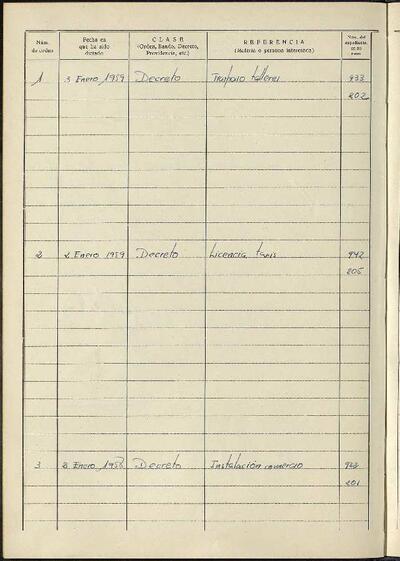 Núm. de orden | Fecha en que ha sido dictado | CLASE (Orden, Bando, Decreto, Providencia, etc.) | REFERENCIA (Materia o persona interesada) | Núm. del expediente
1 | 3 Enero, 1959 | Decreto | Trabajo talleres | 933
202
2 | 2 Enero 1959 | Decreto | Licencia taxis | 942
205
3 | 2 Enero, 1958 | Decreto | Instalación comercio
201